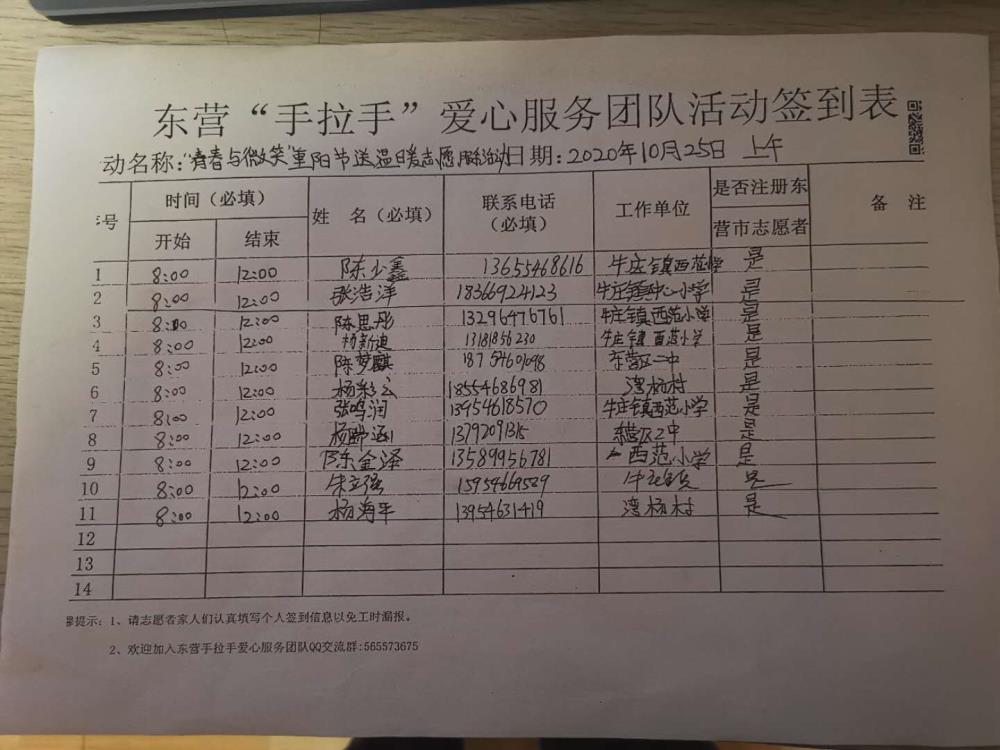 东营“手拉手”爱心服务团队活动签到表
动名称:“青春与微笑”重阳节送温暖志愿服务活动日期:2020年10月25日 上午
号 时间(必填) 姓 名(必填) 联系电话(必填) 工作单位 是否注册东营市志愿者 备 注
开始 结束
1 8:00 12:00 陈少鑫 13655468616 牛庄镇西范小学 是
2 8:00 12:00 张浩洋 18366924123 牛庄镇中心小学 是
3 8:00 12:00 陈思彤 13296476761 牛庄镇西范小学 是
4 8:00 12:00 杨新迪 13181856230 牛庄镇西范小学 是
5 8:00 12:00 陈梦麒 18754601098 东营区二中 是
6 8:00 12:00 杨彩云 18554686981 湾杨村 是
7 8:00 12:00 张鸣润 13954618570 牛庄镇西范小学 是
8 8:00 12:00 杨 涵 13792091315 东营区二中 是
9 8:00 12:00 陈金泽 13589956781 西范小学 是
10 8:00 12:00 朱立强 15954669589 是
11 8:00 12:00 杨海军 13954631419 湾杨村 是
12
13
14
提示:1、请志愿者家人们认真填写个人签到信息以免工时漏报。
2、欢迎加入东营手拉手爱心服务团队QQ交流群:565573675